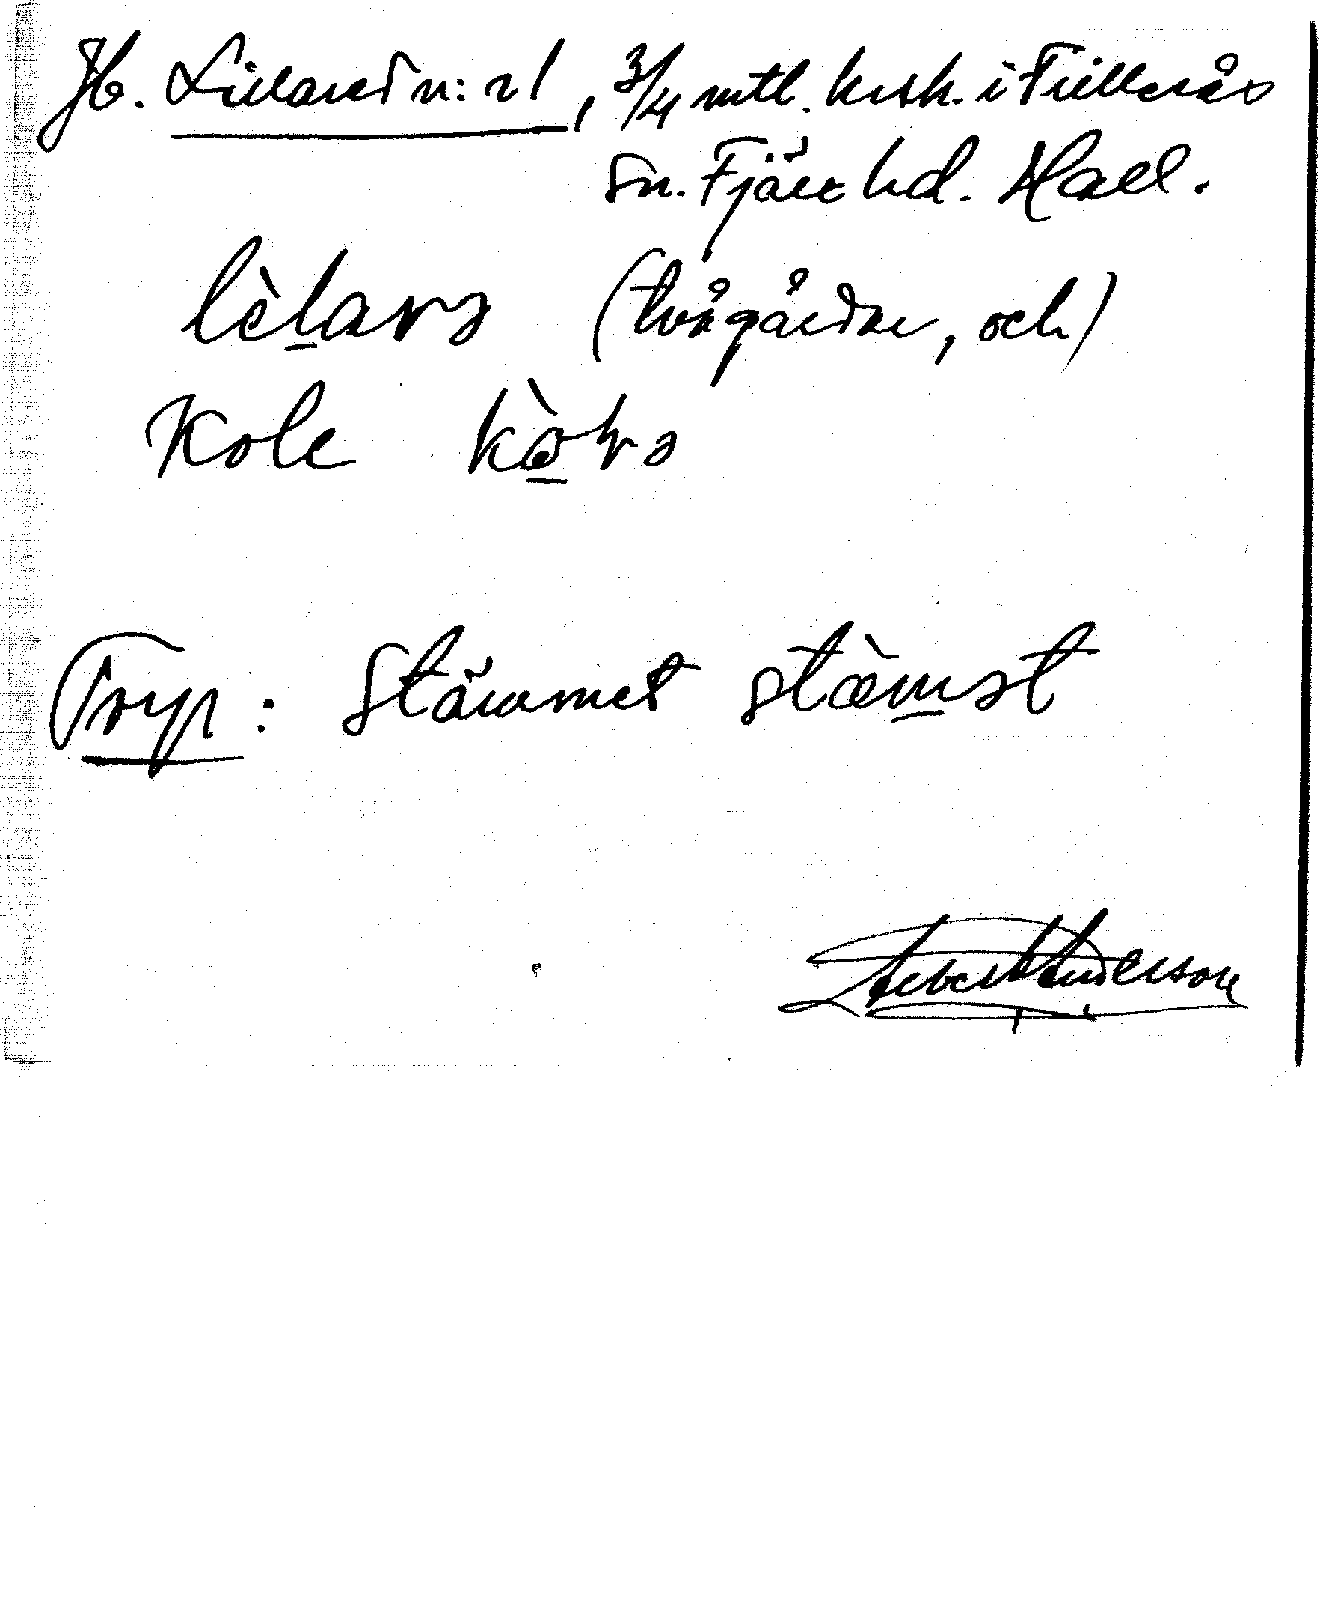 Jb. Lillared n:r 1, 3/4 mtl. krsk. i Frillesås
sn. Fjäre hd. Hall.
lèlara (tvågårdar, och)
Kole kò
Torp: Stämmet stæ̀mət
Albert Anderson